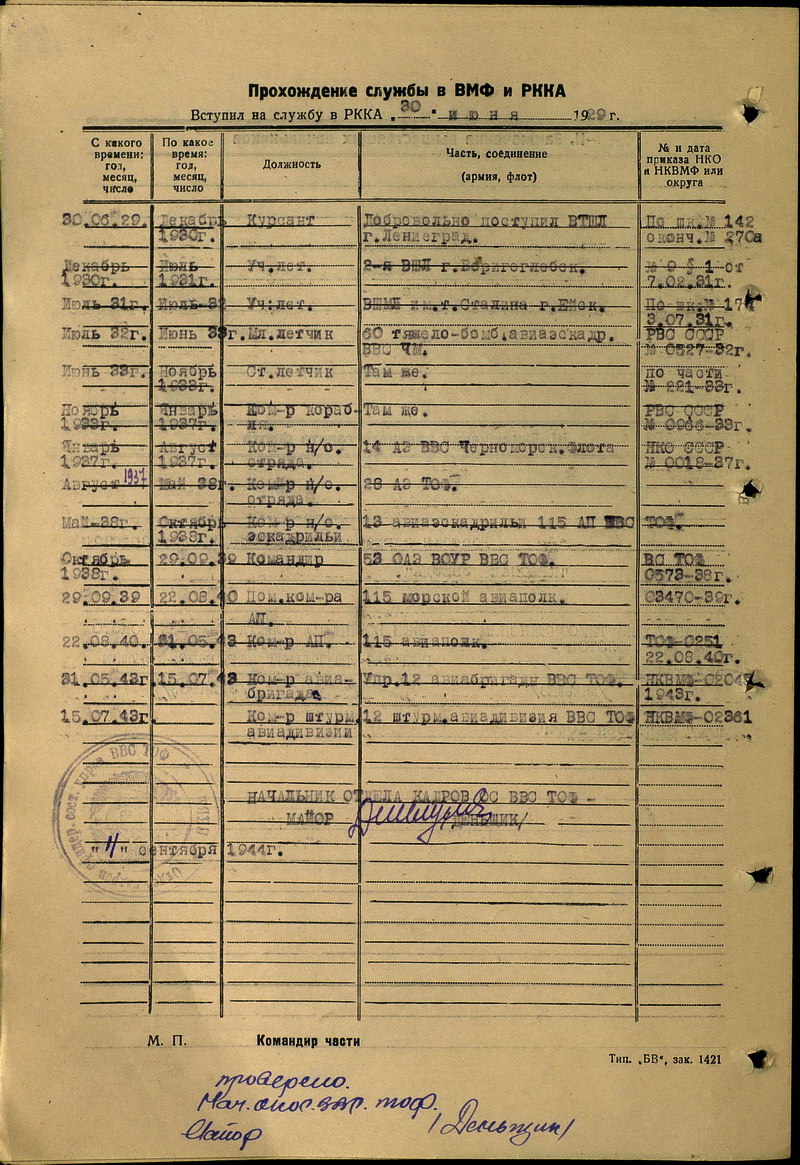 Прохождение службы в ВМФ и РККА
Вступил на службу в РККА „30“ июня 1929 г.
С какого времени: год, месяц, число | По какое время: год, месяц, число | Должность | Часть, соединение (армия, флот) | № и дата приказа НКО и НКВМФ или округа
30.06.29. | Декабрь | Курсант | Добровольно поступил ВТШЛ | По шк.№ 142
1930г. | г.Ленинград. | оконч.№ 270а
Декабрь | Июль | Уч.лет. | 2-я ВШЛ г.Борисоглебск. | № 9 § 1-от
1930г. | 1931г. | 7.02.31г.
Июль 31г. | Июль-32 | Уч.лет. | ВШМЛ им.т.Сталина г.Ейск. | По шк.№ 174
3.07.31г.
Июль 32г. | Июнь 33г. | Мл.летчик | 60 тяжело-бомб.авиаэскадр. | РВС СССР
ВВС ЧМ. | № 0527-32г.
Июнь 33г. | Ноябрь | Ст.летчик | Там же. | по части
1933г. | № 221-33г.
Ноябрь | Январь | Ком-р кораб- | Там же. | РВС СССР
1933г. | 1937г. | ля. | № 0966-33г.
Январь | Август | Ком-р н/о. | 14 АЭ ВВС Черноморск.флота | НКО СССР
1937г. | 1937г. | отряда. | № 0018-37г.
Август 1937 | Май 38г. | Ком-р н/о. | 28 АЭ ТОФ.
отряда.
Май-38г. | Октябрь | Ком-р н/о. | 13 авиаэскадрильи 115 АП ВВС | ТОФ.
1938г. | эскадрильи
Октябрь | 29.09.39 | Командир | 53 ОАЭ ВОУР ВВС ТОФ. | ВС ТОФ
1938г. | 0573-38г.
29.09.39 | 22.08.40 | Пом.ком-ра | 115 морской авиаполк. | 03470-39г.
АП.
22.08.40. | 31.05.43 | Ком-р АП. | 115 авиаполк. | ТОФ-0251
22.08.40г.
31.05.43г | 15.07.43 | Ком-р авиа- | Упр.12 авиабригады ВВС ТОФ. | НКВМФ-
бригады | 1943г.
15.07.43г. | Ком-р штурм. | 12 штурм.авиадивизия ВВС ТОФ | НКВМФ-02361
авиадивизии
НАЧАЛЬНИК ОТДЕЛА КАДРОВ ОС ВВС ТОФ -
МАЙОР /ДЕНЬЩИК/
"4" сентября 1944г.
М. П. Командир части
Тип. „БВ“, зак. 1421
проверено.
Майор /Деньщик/